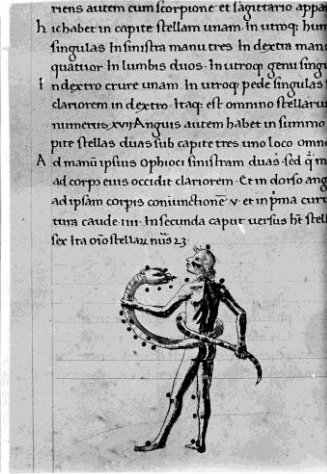 riens autem cum scorpione et sagittario appa
hic habet in capite stellam unam. In utroq; hum
singulas In sinistra manu tres In dextra man
quatuor In lumbis duos. In utroq; genu singu
In dextro crure unam. In utroq; pede singulas
clariorem in dextro. Itaq; est omnino stellaru
numerus. xvij Anguis autem habet in summo
pite stellas duas sub capite tres uno loco omne
Ad manū ipsius Ophioci sinistram duas. sed q̄ m
ad corpus eius occidit clariorem. Et in dorso ang
ad ipsam corpis coniunctionē v. et in pma cur
tura caude. IIII. In secunda caput uersus ht̄ stell
sex Ita oīo stellaꝝ nūs 23